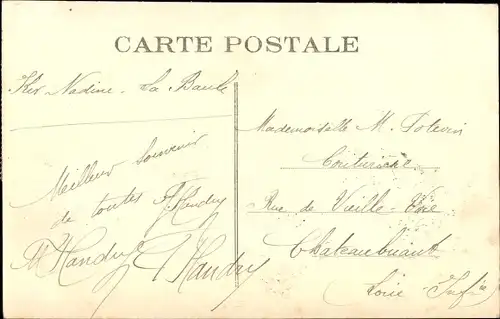 CARTE POSTALE
Ker Nadine. La Baule
Meilleur Souvenir
de toutes
Mademoiselle M. Potevin
Couturière
Rue de Vieille-Voie
Chateaubriant
Loire Infre